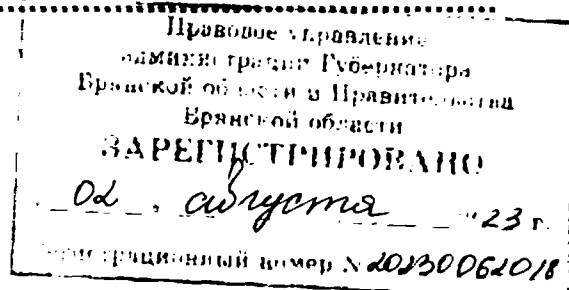 Правовое управление
администрации Губернатора
Брянской области и Правительства
Брянской области
ЗАРЕГИСТРИРОВАНО
"02", августа "23 г.
регистрационный номер № 20230062018